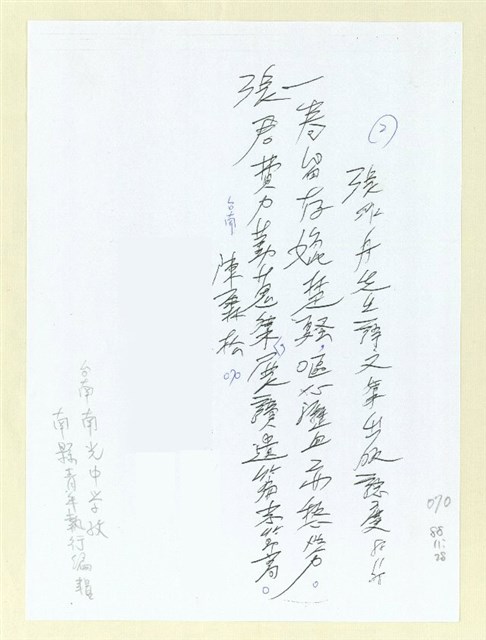 (2)
張冰丹先生詩文集出版誌慶 85.11.15
一卷留存媲楚騷，嘔心瀝血不愁勞。
張君費力勤蒐集，展讀遺篇李等高。
台南
陳霖松 070
070
85.
11.
28
台南南光中学校
南縣青年執行編輯